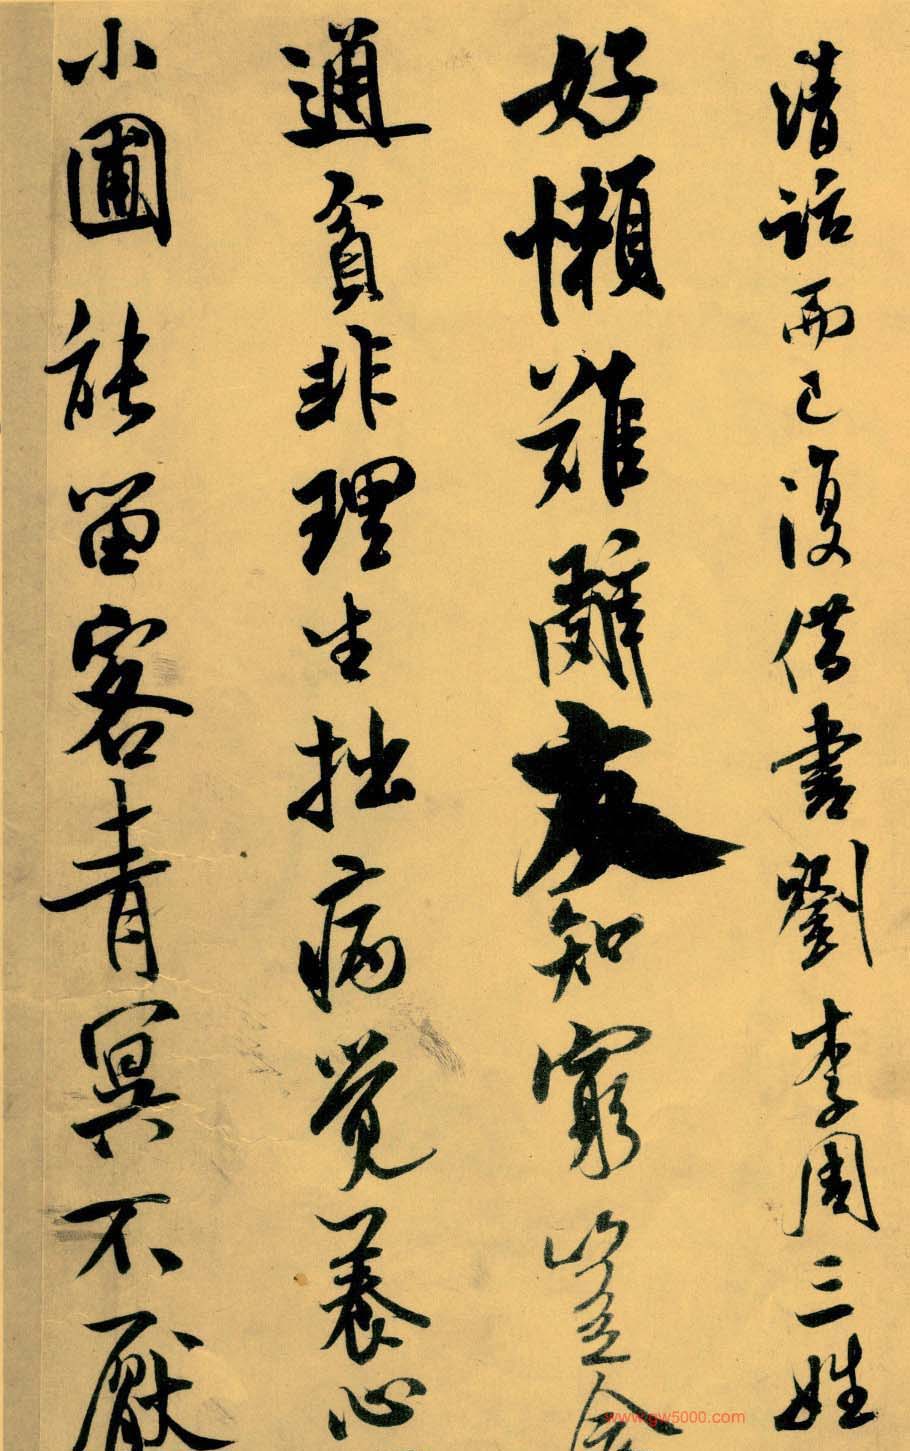 清話而已復借書劉李周三姓
好懶難辭友知窮豈念
通貧非理生拙病覺養心
小圃能留客青冥不厭
www.gw5000.com